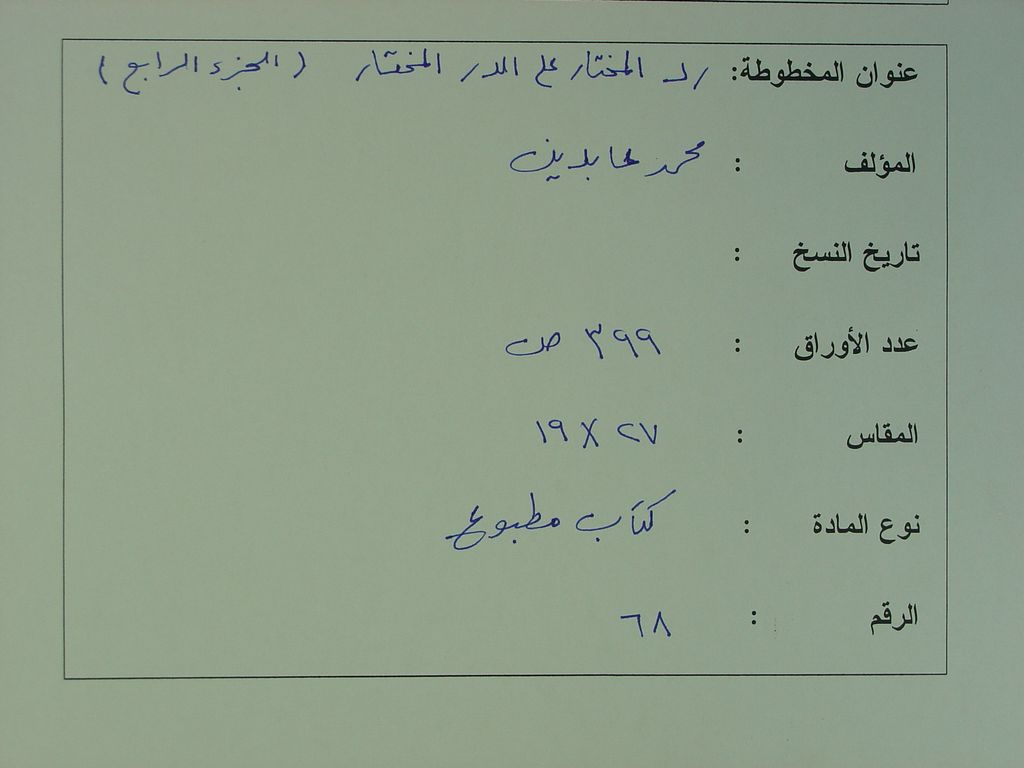 عنوان المخطوطة: رد المختار على الدر المختار (الجزء الرابع)
المؤلف : محمد عابدين
تاريخ النسخ :
عدد الأوراق : ٣٩٩ ص
المقاس : ٢٧ X ١٩
نوع المادة : كتاب مطبوع
الرقم : ٦٨